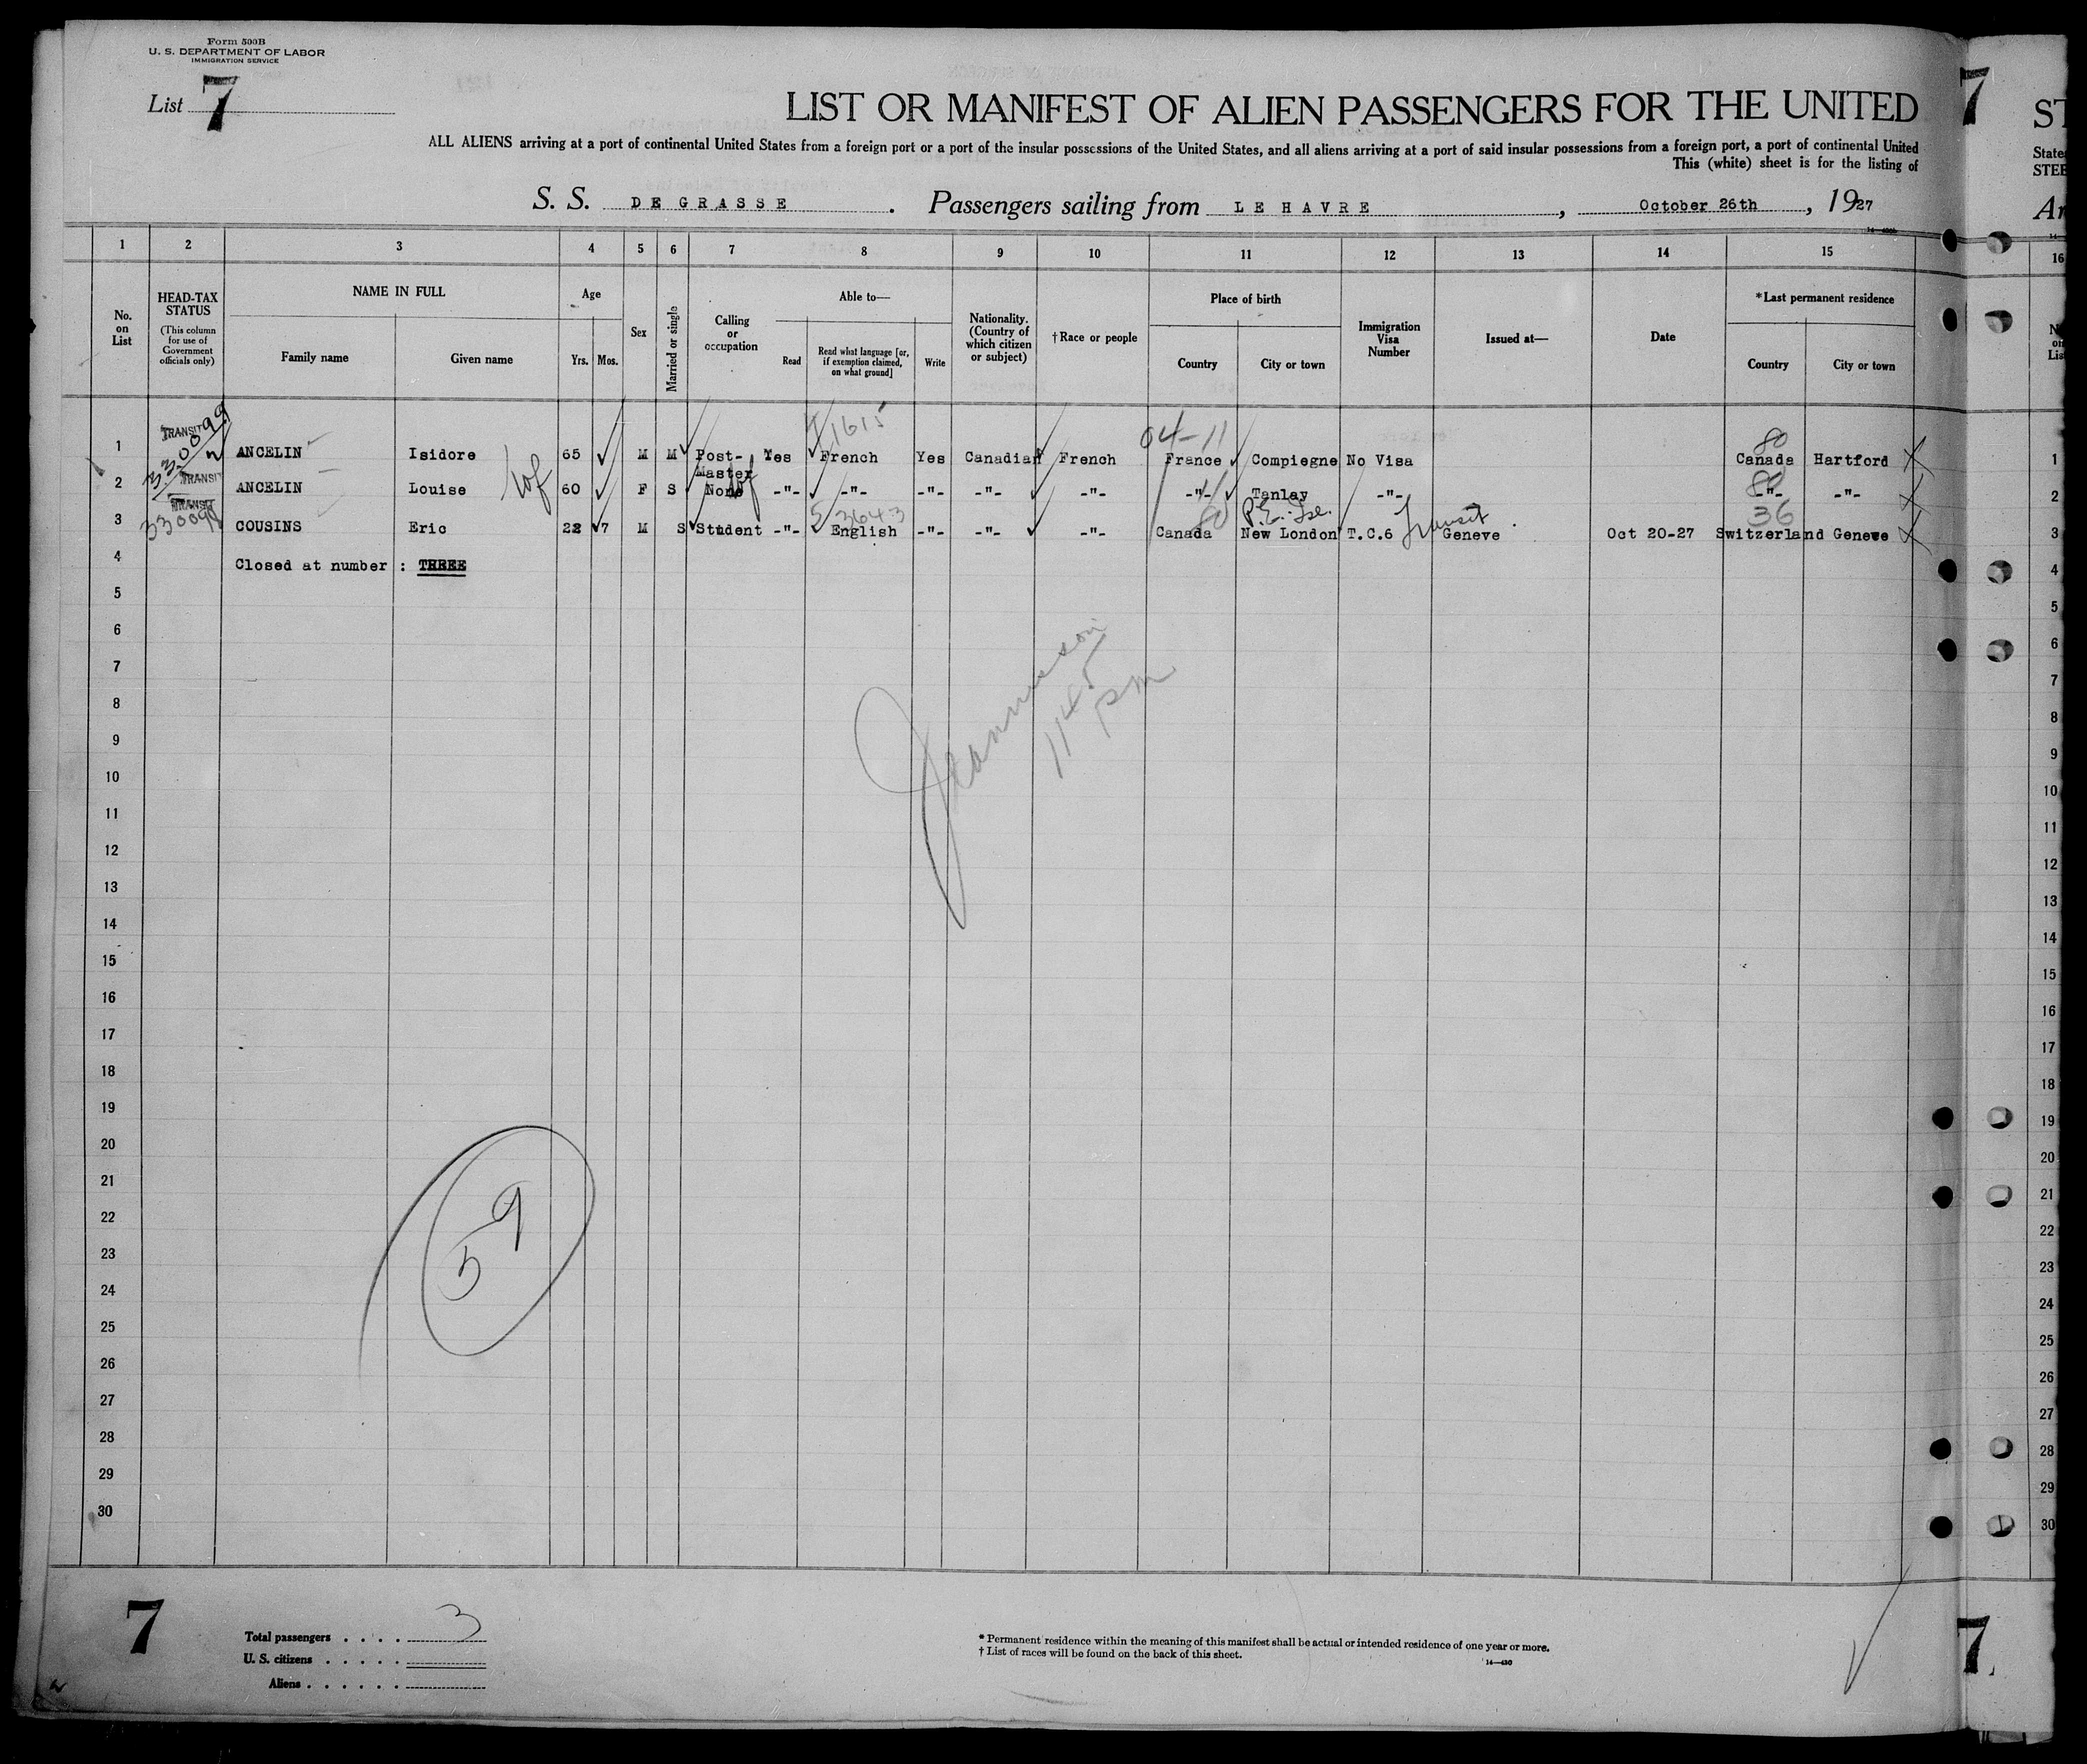 Form 500B
U. S. DEPARTMENT OF LABOR
IMMIGRATION SERVICE
List 7
7
LIST OR MANIFEST OF ALIEN PASSENGERS FOR THE UNITED
ST
ALL ALIENS arriving at a port of continental United States from a foreign port or a port of the insular possessions of the United States, and all aliens arriving at a port of said insular possessions from a foreign port, a port of continental United
State
This (white) sheet is for the listing of
STEE
S. S. DE GRASSE . Passengers sailing from LE HAVRE , October 26th , 1927
Ar
1 2 3 4 5 6 7 8 9 10 11 12 13 14 15 16
No. on List
HEAD-TAX STATUS
(This column for use of Government officials only)
NAME IN FULL
Family name Given name
Age
Yrs. Mos.
Sex
Married or single
Calling or occupation
Able to—
Read Read what language [or, if exemption claimed, on what ground] Write
Nationality. (Country of which citizen or subject)
†Race or people
Place of birth
Country City or town
Immigration Visa Number
Issued at—
Date
*Last permanent residence
Country City or town
TRANSIT 1615 04-11 80
1 ANCELIN Isidore 65 M M Post-Master Yes French Yes Canadian French France Compiegne No Visa Canada Hartford 1
TRANSIT 80
2 ANCELIN Louise 60 F S None -"- -"- -"- -"- -"- -"- Tanlay -"- -"- -"- 2
TRANSIT 330099 3643 80 P.E. Isl. Transit 36
3 COUSINS Eric 22 7 M S Student -"- English -"- -"- -"- Canada New London T.C.6 Geneve Oct 20-27 Switzerland Geneve 3
4 Closed at number : THREE 4
5 5
6 6
7 7
8 8
9 9
10 10
11 11
12 12
13 13
14 14
15 15
16 16
17 17
18 18
19 19
20 20
21 21
22 22
23 23
24 24
25 25
26 26
27 27
28 28
29 29
30 30
1145 pm
59
7
Total passengers . . . . 3
U. S. citizens . . . . .
Aliens . . . . . .
* Permanent residence within the meaning of this manifest shall be actual or intended residence of one year or more.
† List of races will be found on the back of this sheet.
14—430
7